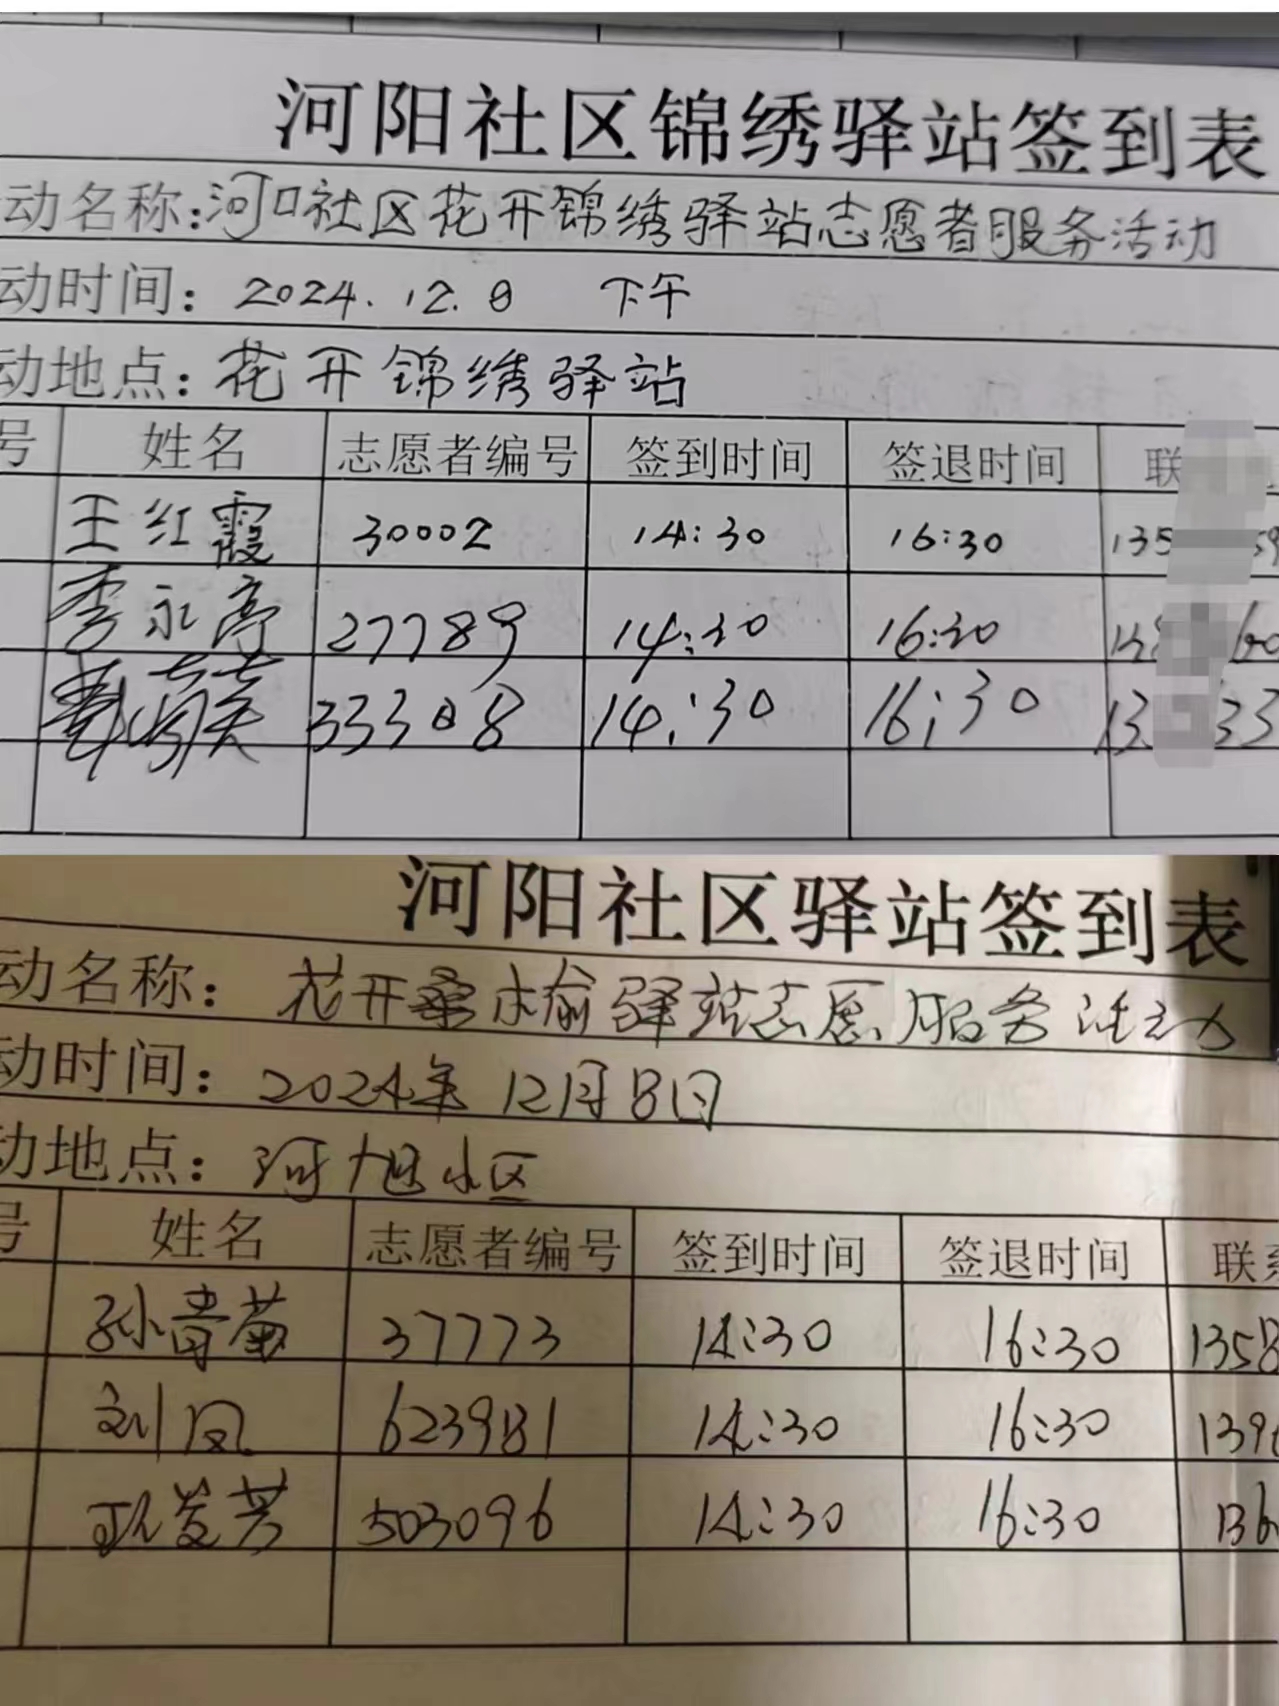 河阳社区锦绣驿站签到表
动名称:河口社区花开锦绣驿站志愿者服务活动
动时间: 2024.12.8 下午
动地点: 花开锦绣驿站
号 姓名 志愿者编号 签到时间 签退时间 联
王红霞 30002 14:30 16:30 135
李永亭 27789 14:30 16:30
33308 14:30 16:30 13 33
河阳社区驿站签到表
动名称: 花开桑榆驿站志愿服务活动
动时间: 2024年12月8日
动地点: 河旭小区
号 姓名 志愿者编号 签到时间 签退时间 联系
孙青菊 37773 14:30 16:30 1358
刘凤 623981 14:30 16:30 139
503096 14:30 16:30 136